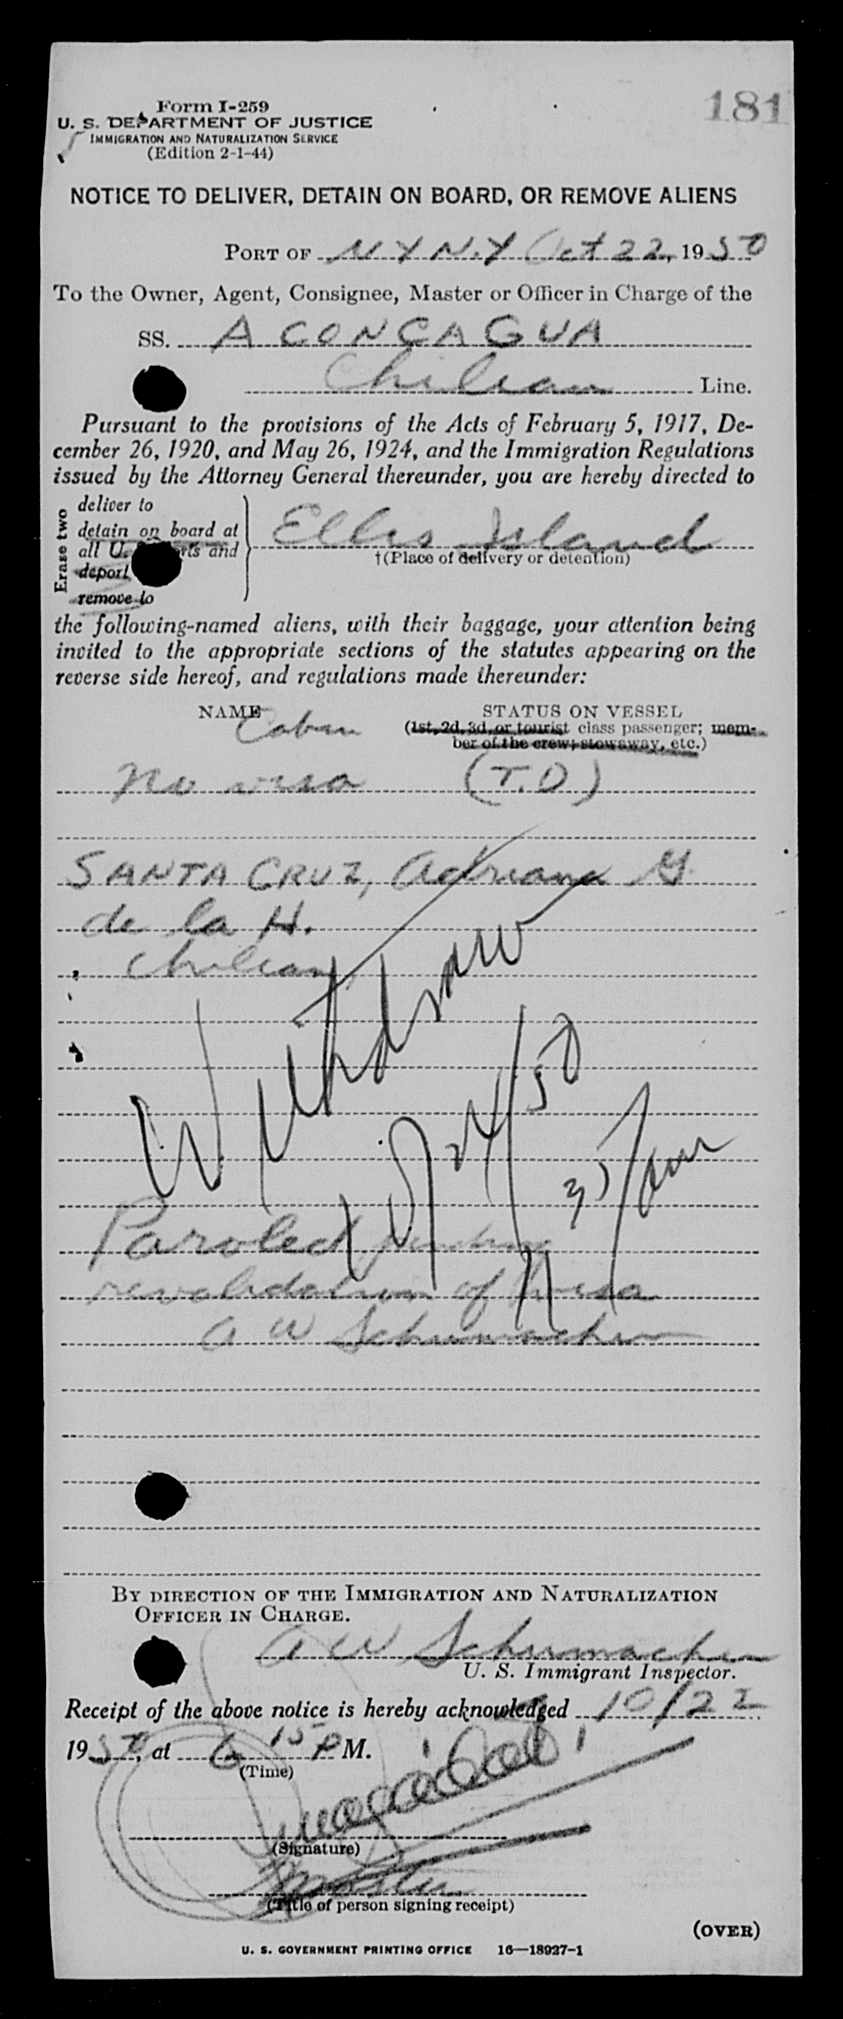 181
Form I-259
U. S. DEPARTMENT OF JUSTICE
IMMIGRATION AND NATURALIZATION SERVICE
(Edition 2-1-44)
NOTICE TO DELIVER, DETAIN ON BOARD, OR REMOVE ALIENS
PORT OF N Y N.Y Oct 22, 1950
To the Owner, Agent, Consignee, Master or Officer in Charge of the
SS. ACONCAGUA
Chilean Line.
Pursuant to the provisions of the Acts of February 5, 1917, De-
cember 26, 1920, and May 26, 1924, and the Immigration Regulations
issued by the Attorney General thereunder, you are hereby directed to
Erase two
deliver to
detain on board at
all U. ports and
deport
remove to
Ellis Island
†(Place of delivery or detention)
the following-named aliens, with their baggage, your attention being
invited to the appropriate sections of the statutes appearing on the
reverse side hereof, and regulations made thereunder:
NAME STATUS ON VESSEL
Cabin (1st, 2d, 3d, or tourist class passenger; mem-
ber of the crew; stowaway, etc.)
No visa (T.D)
SANTA CRUZ, Adriana G
de la H.
Chilean
Withdrawn
10/24/50
Paroled pending
revalidation of visa
A W Schumacher
BY DIRECTION OF THE IMMIGRATION AND NATURALIZATION
OFFICER IN CHARGE.
A W Schumacher
U. S. Immigrant Inspector.
Receipt of the above notice is hereby acknowledged 10/22
1950, at 6 15 P M.
(Time)
(Signature)
Master
(Title of person signing receipt)
(OVER)
U. S. GOVERNMENT PRINTING OFFICE 16—18927-1